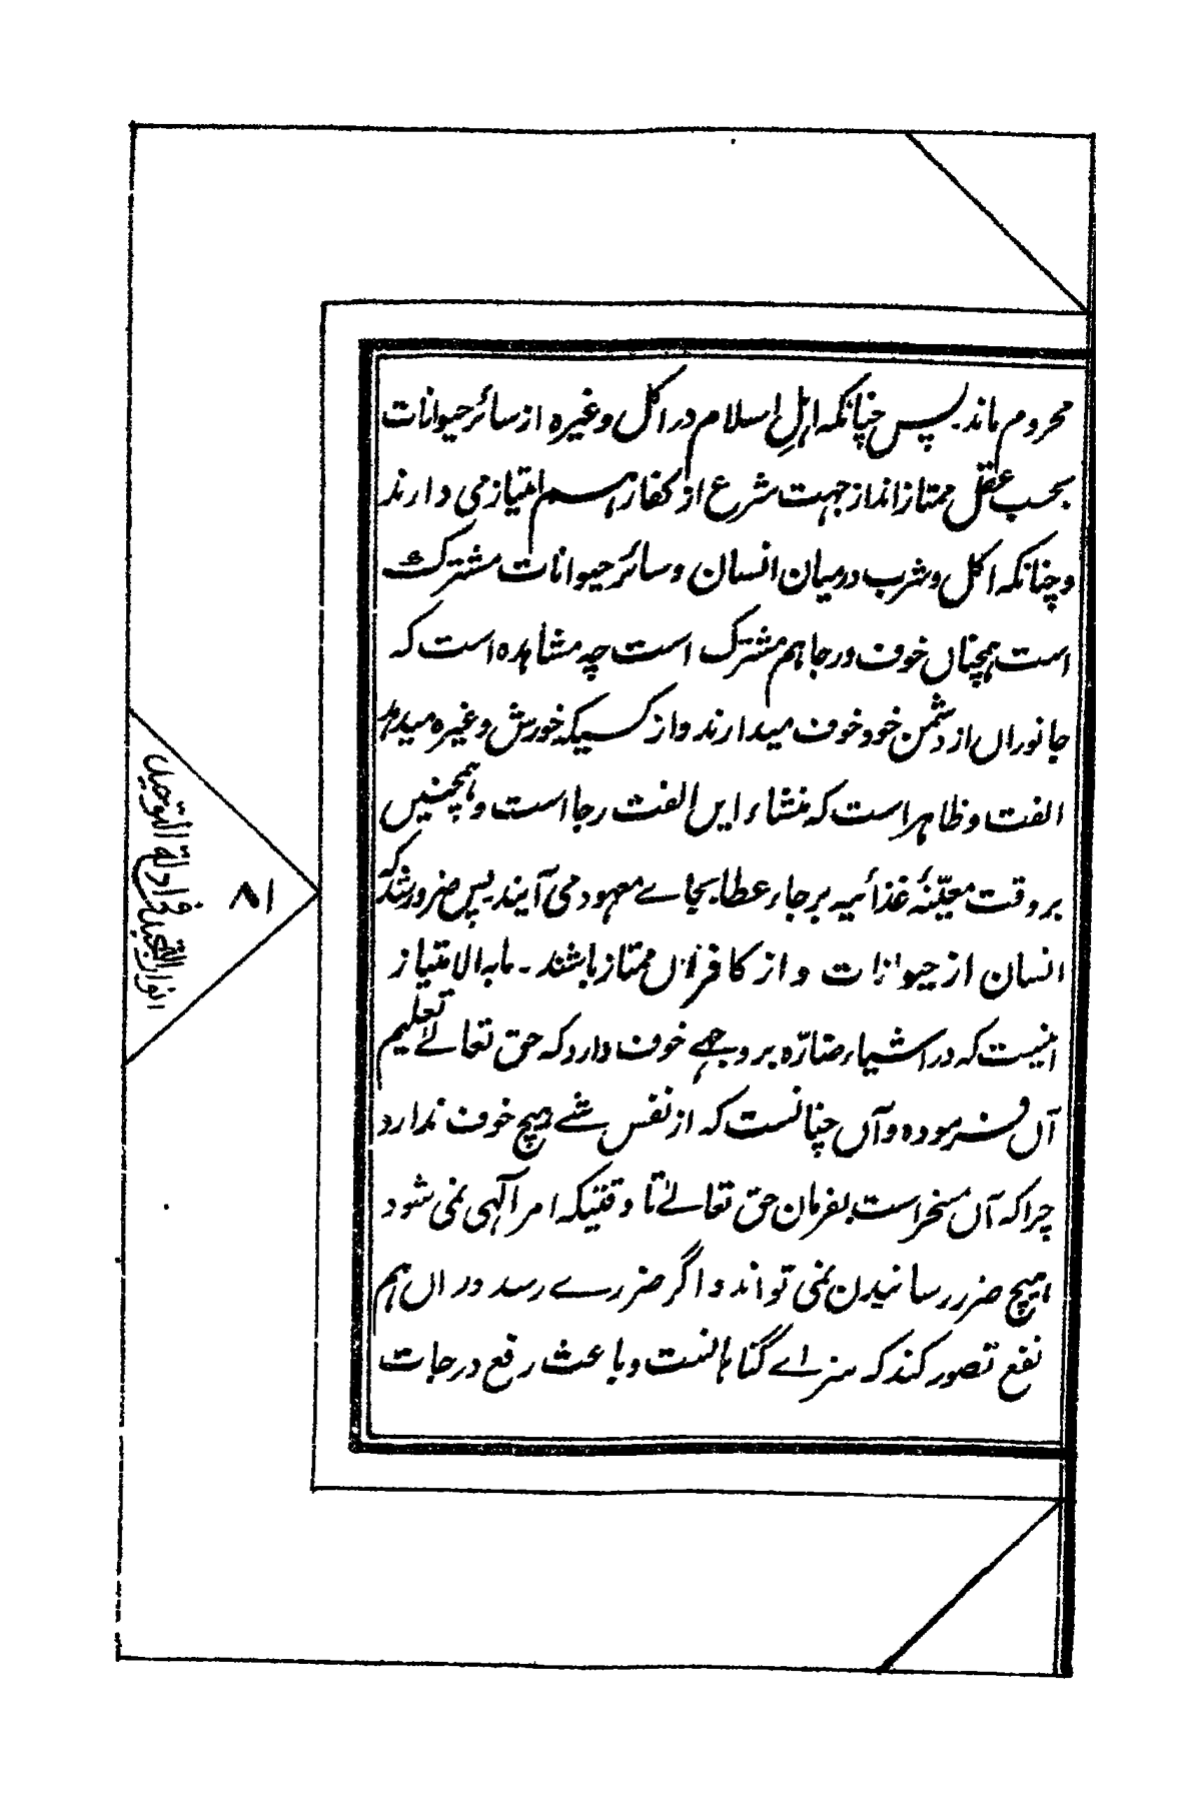 محروم ماند۔ پس چنانکہ اہلِ اسلام در اکل و غیرہ از سائر حیوانات
بحسب عقل ممتاز اند از جہت شرع از کفار ہم امتیاز می دارند
و چنانکہ اکل و شرب درمیان انسان و سائر حیوانات مشترک
است ہمچناں خوف و رجا ہم مشترک است چہ مشاہدہ است کہ
جانوراں از دشمن خود خوف میدارند و از کسیکہ خورش و غیرہ میدہد
الفت و ظاہر است کہ منشاء ایں الفت رجا است و ہمچنیں
بر وقت معیّنۂ غذائیہ بر جاء عطا بجاے معہود می آیند پس ضرور شد کہ
انسان از حیوانات و از کافراں ممتاز باشند۔ مابہ الامتیاز
اینست کہ در اشیاء ضارّہ بر وجہے خوف دارد کہ حق تعالےٰ تعلیم
آں فرمودہ و آں چنانست کہ از نفس شے ہیچ خوف ندارد
چرا کہ آں مسخر است بفرمان حق تعالےٰ تا وقتیکہ امر الٰہی نمی شود
ہیچ ضرر رسانیدن نمی تواند و اگر ضررے رسد دراں ہم
نفع تصور کند کہ سزاے گناہانست و باعث رفع درجات
۸۱
انوار التجید فی ادلۃ التوحید